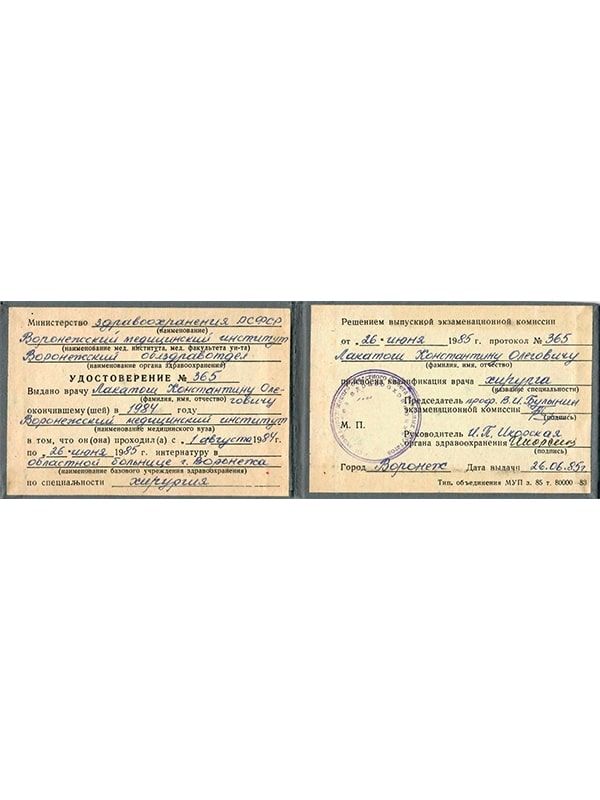 Министерство здравоохранения РСФСР
(наименование)
Воронежский медицинский институт
(наименование мед. института, мед. факультета ун-та)
Воронежский облздравотдел
(наименование органа здравоохранения)
УДОСТОВЕРЕНИЕ № 365
Выдано врачу Лакатош Константину Оле-
(фамилия, имя, отчество) говичу
окончившему(шей) в 1984 году
Воронежский медицинский институт
(наименование медицинского вуза)
в том, что он(она) проходил(а) с 1 августа 1984 г.
по 26 июня 1985 г. интернатуру в
областной больнице г. Воронежа
(наименование базового учреждения здравоохранения)
по специальности хирургия
Решением выпускной экзаменационной комиссии
от 26 июня 1985 г. протокол № 365
Лакатош Константину Олеговичу
(фамилия, имя, отчество)
присвоена квалификация врача хирурга
(название специальности)
Председатель проф. В.И. Булынин
экзаменационной комиссии
(подпись)
М. П.
Руководитель
органа здравоохранения
(подпись)
Город Воронеж Дата выдачи 26.06.85 г
Тип. объединения МУП з. 85 т. 80000—83